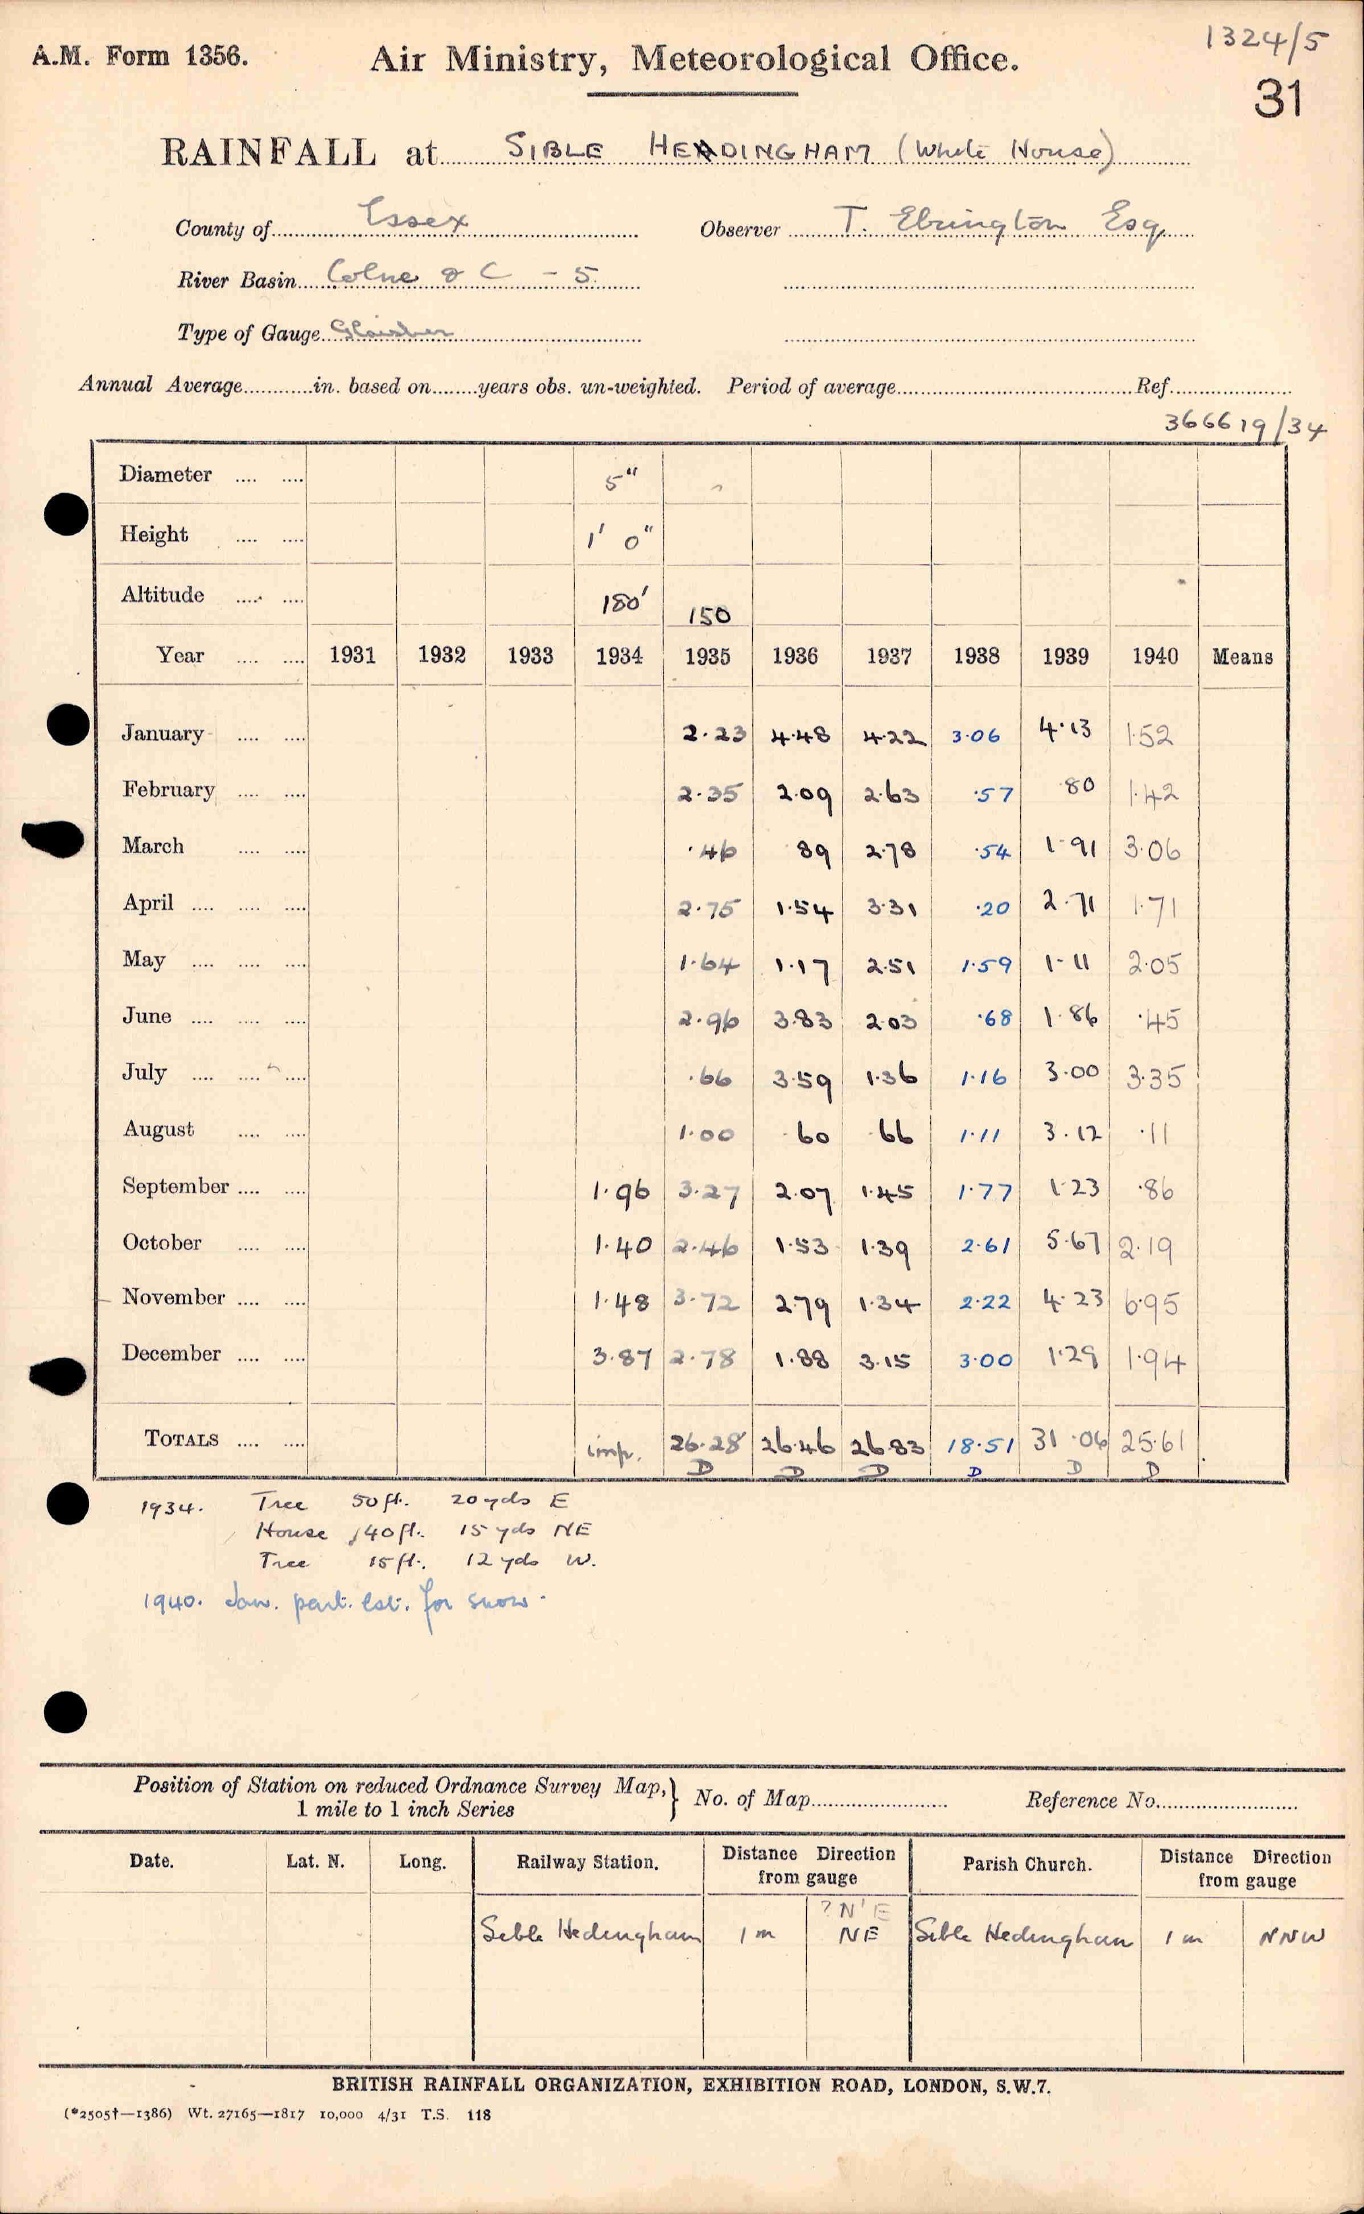 1324/5
A.M. Form 1356. Air Ministry, Meteorological Office.
31
RAINFALL at SIBLE HEDINGHAM (White House)
County of Essex Observer T. Ebrington Esq.
River Basin Colne & C - 5
Type of Gauge Glaisher
Annual Average............in. based on........years obs. un-weighted. Period of average.................Ref.................
366619/34
Diameter .... .... 5"
Height .... .... 1' 0"
Altitude .... .... 180' 150
Year .... .... 1931 1932 1933 1934 1935 1936 1937 1938 1939 1940 Means
January .... .... 2.23 4.48 4.22 3.06 4.13 1.52
February .... .... 2.35 2.09 2.63 .57 .80 1.42
March .... .... .46 89 2.78 .54 1.91 3.06
April .... .... .... 2.75 1.54 3.31 .20 2.71 1.71
May .... .... .... 1.64 1.17 2.51 1.59 1.11 2.05
June .... .... .... 2.96 3.83 2.03 .68 1.86 .45
July .... .... .... .66 3.59 1.36 1.16 3.00 3.35
August .... .... 1.00 .60 .66 1.11 3.12 .11
September .... .... 1.96 3.27 2.07 1.45 1.77 1.23 .86
October .... .... 1.40 2.46 1.53 1.39 2.61 5.67 2.19
November .... .... 1.48 3.72 2.79 1.34 2.22 4.23 6.95
December .... .... 3.87 2.78 1.88 3.15 3.00 1.29 1.94
TOTALS .... .... imp. 26.28 26.46 26.83 18.51 31.06 25.61
D D D D D D
1934. Tree 50ft. 20yds E
House 40ft. 15yds NE
Tree 15ft. 12yds W.
1940. Jan. part. est. for snow.
Position of Station on reduced Ordnance Survey Map,} No. of Map........................ Reference No.........................
1 mile to 1 inch Series
Date. Lat. N. Long. Railway Station. Distance Direction from gauge Parish Church. Distance Direction from gauge
? N'E
Sible Hedingham 1 m NE Sible Hedingham 1 m NNW
BRITISH RAINFALL ORGANIZATION, EXHIBITION ROAD, LONDON, S.W.7.
(*2505†—1386) Wt. 27165—1817 10,000 4/31 T.S. 118